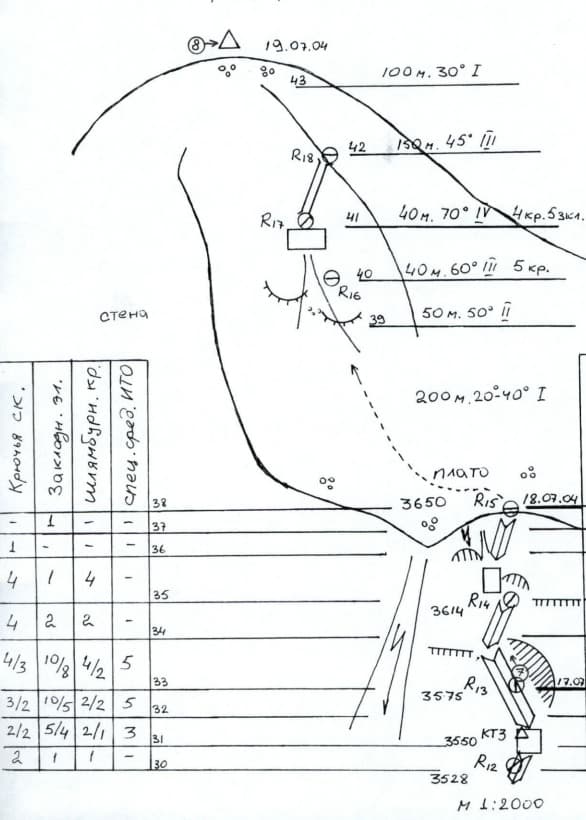 8 19.07.04
43 100 м. 30° I
R18 42 150 м. 45° III
R17 41 40 м. 70° IV 4 кр. 5 зкл.
40 40 м. 60° III 5 кр.
R16
39 50 м. 50° II
стена
200 м. 20°-40° I
плато
Крючья ск. Закладн. эл. Шлямбурн. кр. спец. сред. ИТО
38 3650 R15 18.07.04
- 1 - - 37
1 - - - 36
4 1 4 - 35
3614 R14
4 2 2 - 34
4/3 10/8 4/2 5 33
7
3575 R13 17.07
3/2 10/5 2/2 5 32
2/2 5/4 2/1 3 31
3550 КТ3
2 1 1 - 30
R12
3528
М 1:2000